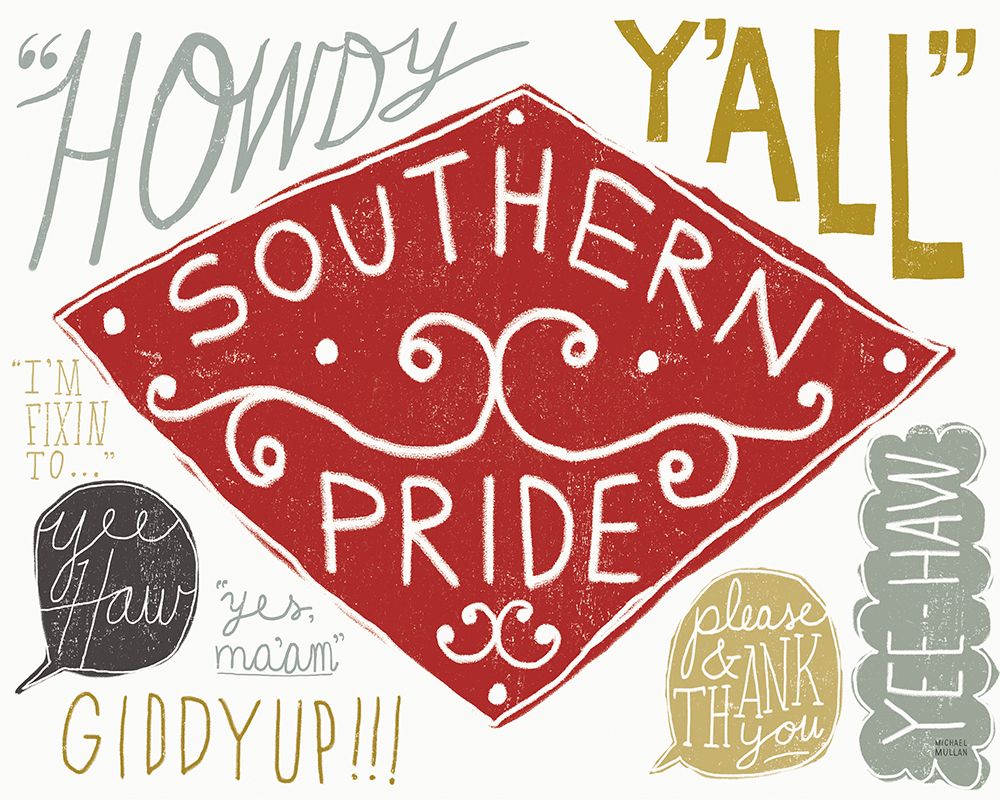 “HOWDY Y’ALL”
SOUTHERN
PRIDE
“I’M
FIXIN
TO...”
yee
Haw
“yes,
ma’am”
GIDDYUP!!!
please
& THANK
you
YEE-HAW
MICHAEL
MULLAN